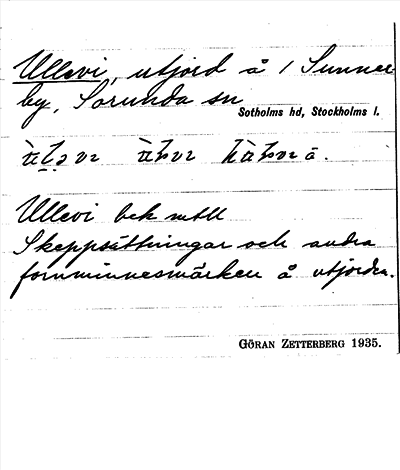 Ullevi, utjord å 1 Sunner
by, Sorunda sn
Sotholms hd, Stockholms l.
Ullevi bek mtll
Skeppsättningar och andra
fornminnesmärken å utjorden.
GÖRAN ZETTERBERG 1935.